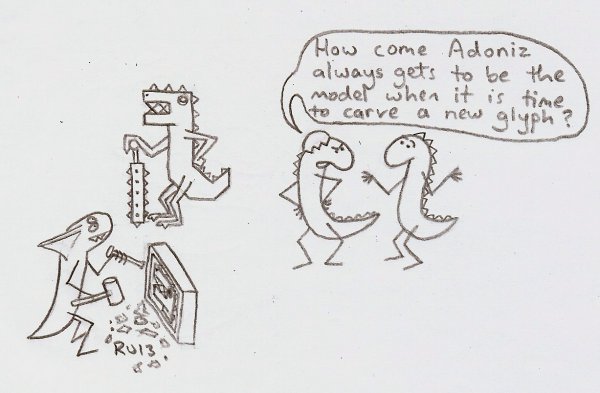 How come Adoniz
always gets to be the
model when it is time
to carve a new glyph?
RU13